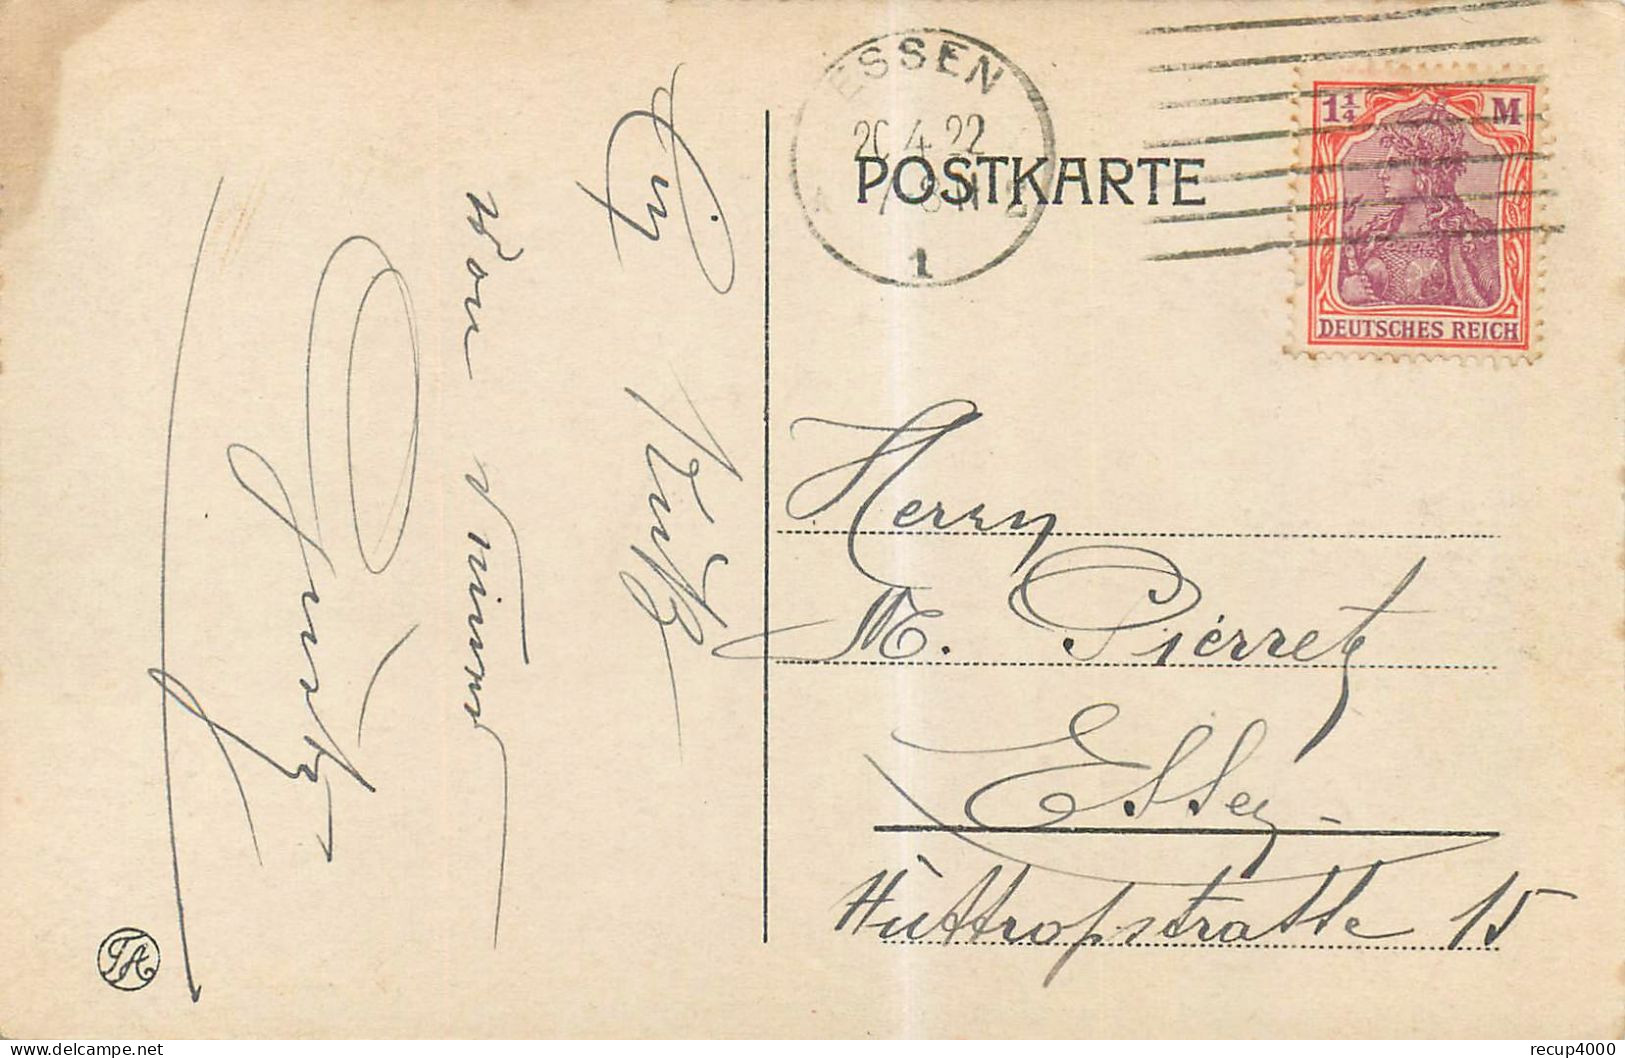 ESSEN
20.4.22
1
POSTKARTE
1 1/4 M
DEUTSCHES REICH
Herrn
M. Pierret
Essen
Huttropstrasse 15
Ein
von
TA
recup4000